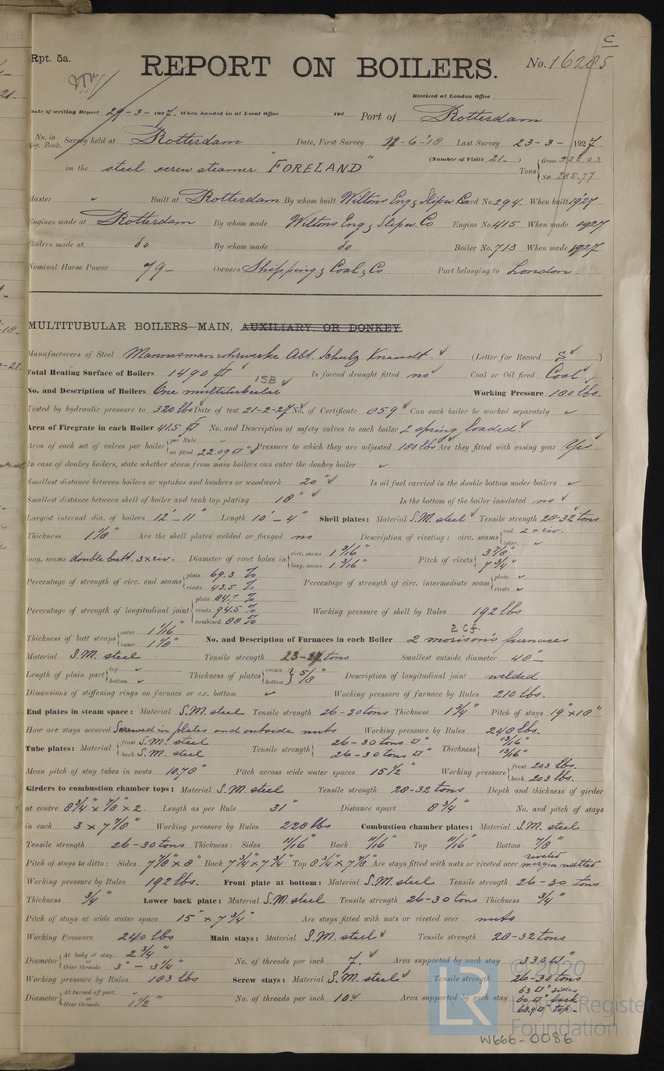 C
Rpt. 5a.
REPORT ON BOILERS.
No. 16285
Received at London Office
Date of writing Report 29-3-1927. When handed in at Local Office 192 Port of Rotterdam
No. in Reg. Book. Survey held at Rotterdam Date, First Survey -6-'18 Last Survey 23-3-1927
on the steel screw steamer "FORELAND" (Number of Visits 21.) Tons Gross Net 285.77
Master Built at Rotterdam By whom built Wiltons Eng & Slipw Co Yard No. 294. When built 1927
Engines made at Rotterdam By whom made Wiltons Eng & Slipw Co Engine No. 415 When made 1927
Boilers made at do By whom made do Boiler No. 713 When made 1927
Nominal Horse Power 79- Owners Shipping & Coal Co Port belonging to London
MULTITUBULAR BOILERS—MAIN, AUXILIARY OR DONKEY.
Manufacturers of Steel Abt. Schulz Knaudt. (Letter for Record S)
Total Heating Surface of Boilers 1490 Is forced draught fitted no Coal or Oil fired Coal
No. and Description of Boilers One multitubular 1SB Working Pressure 180 lbs.
Tested by hydraulic pressure to 320 lbs Date of test 21-2-27 No. of Certificate 859 Can each boiler be worked separately
Area of Firegrate in each Boiler 41.5 No. and Description of safety valves to each boiler 2 spring loaded
Area of each set of valves per boiler per Rule as fitted 22.09 □" Pressure to which they are adjusted 180 lbs Are they fitted with easing gear Yes
In case of donkey boilers, state whether steam from main boilers can enter the donkey boiler
Smallest distance between boilers or uptakes and bunkers or woodwork 20" Is oil fuel carried in the double bottom under boilers
Smallest distance between shell of boiler and tank top plating 18" Is the bottom of the boiler insulated no
Largest internal dia. of boilers 12'-11" Length 10'-4" Shell plates: Material S.M. steel Tensile strength 28-32 tons
Thickness 1 1/8" Are the shell plates welded or flanged no Description of riveting: circ. seams end 2 x riv. inter.
long. seams double butt. 3 x riv. Diameter of rivet holes in circ. seams 1 3/16" long. seams 1 3/16" Pitch of rivets 3 7/8" 7 3/4"
Percentage of strength of circ. end seams plate 69.3 % rivets 43.5 % Percentage of strength of circ. intermediate seam plate rivets
Percentage of strength of longitudinal joint plate 84.7 % rivets 94.5 % combined 88 % Working pressure of shell by Rules 192 lbs
Thickness of butt straps outer 1 1/16" inner 1 1/8" No. and Description of Furnaces in each Boiler 2 morison's furnaces 2 cf.
Material S.M. steel Tensile strength tons Smallest outside diameter 48"
Length of plain part top bottom Thickness of plates crown bottom 5/8" Description of longitudinal joint welded.
Dimensions of stiffening rings on furnace or c.c. bottom Working pressure of furnace by Rules 210 lbs.
End plates in steam space: Material S.M. steel Tensile strength 26-30 tons Thickness 1 3/4" Pitch of stays 19" x 18"
How are stays secured Screwed in plates and outside nuts Working pressure by Rules 240 lbs.
Tube plates: Material front S.M. steel back S.M. steel Tensile strength 26-30 tons □" 26-30 tons □" Thickness 13/16" 13/16"
Mean pitch of stay tubes in nests 10.70" Pitch across wide water spaces 15 1/2" Working pressure front 203 lbs. back 203 lbs.
Girders to combustion chamber tops: Material S.M. steel Tensile strength 28-32 tons Depth and thickness of girder
at centre 8 3/4" x 7/8" x 2 Length as per Rule 31" Distance apart 8 3/4" No. and pitch of stays
in each 3 x 7 7/8" Working pressure by Rules 220 lbs Combustion chamber plates: Material S.M. steel
Tensile strength 26-30 tons Thickness: Sides 11/16" Back 11/16" Top 11/16" Bottom 7/8"
Pitch of stays to ditto: Sides 7 7/8" x 8" Back 7 3/4" x 7 3/4" Top 8 1/4" x 7 7/8" Are stays fitted with nuts or riveted over riveted margin nutted
Working pressure by Rules 192 lbs. Front plate at bottom: Material S.M. steel Tensile strength 26-30 tons
Thickness 3/4" Lower back plate: Material S.M. steel Tensile strength 26-30 tons Thickness 3/4"
Pitch of stays at wide water space 15" x 7 3/4" Are stays fitted with nuts or riveted over nuts
Working Pressure 240 lbs Main stays: Material S.M. steel Tensile strength 28-32 tons
Diameter At body of stay, 2 3/4" or Over threads 3" - 3 1/4" No. of threads per inch 7. Area supported by each stay 330 □"
Working pressure by Rules 183 lbs Screw stays: Material S.M. steel Tensile strength 26-30 tons
Diameter At turned off part, or Over threads 1 1/2" No. of threads per inch 10 Area supported by each stay 63 □" sides 60 □" back top
© 2020
LR
Lloyd's Register
Foundation
W666-0086